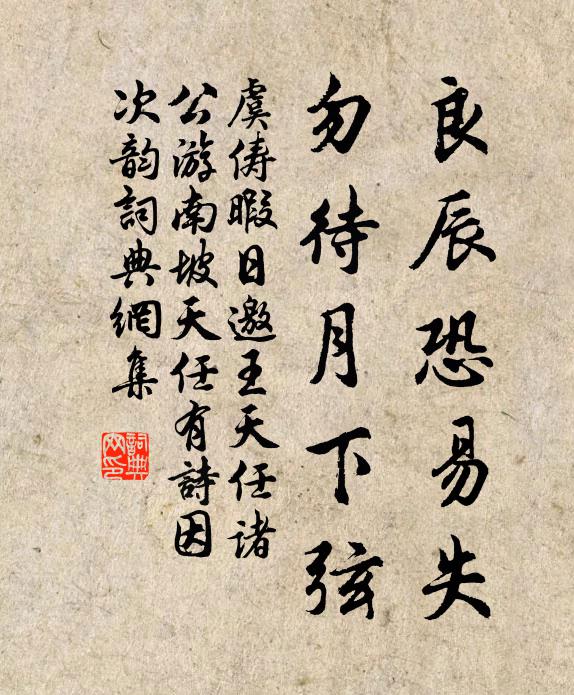 良辰恐易失
勿待月下弦
虞俦暇日邀王天任诸
公游南坡天任有詩因
次韵詞典網集
詞典網印